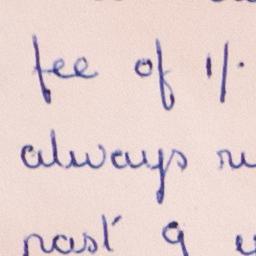 fee of 1/.
always
past 9